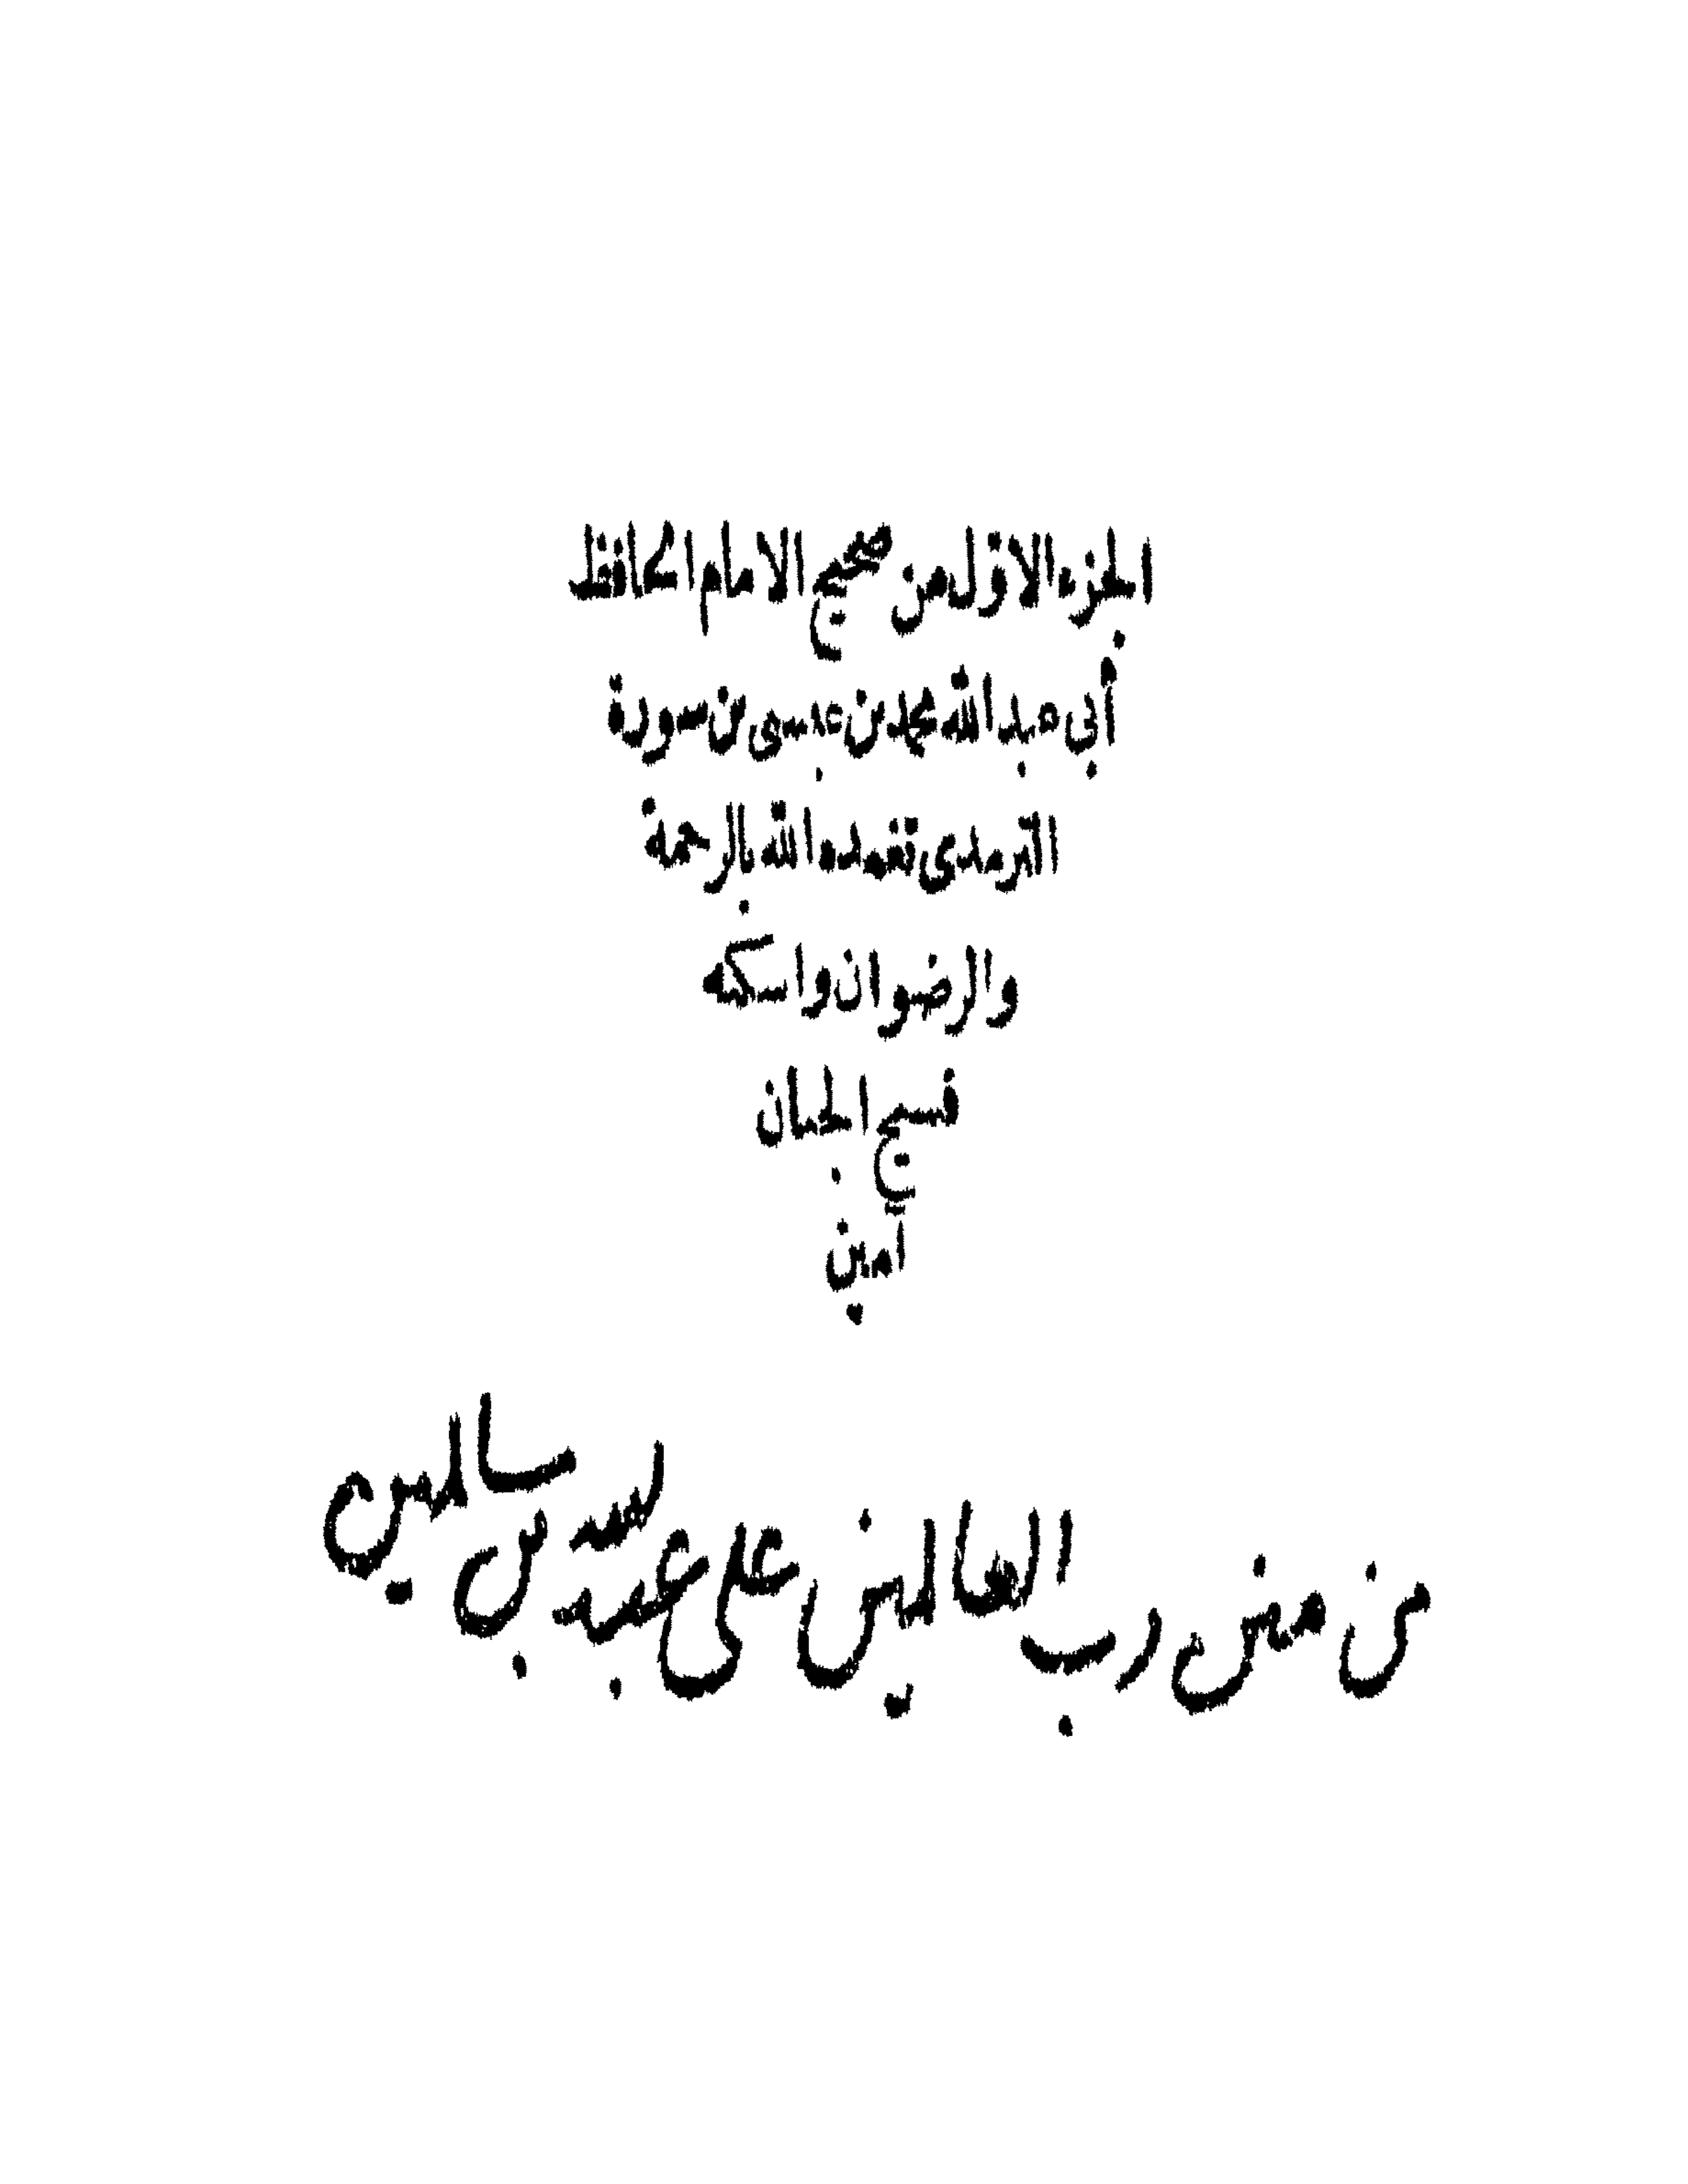 الجزء الاوّل من صحيح الامام الحافظ
أبى عبد الله محمد بن عيسى بن سورة
الترمذى تغمده الله بالرحمة
والرضوان واسكنه
فسيح الجنان
آمين
من منن رب العالمين على عبده بن سالمين